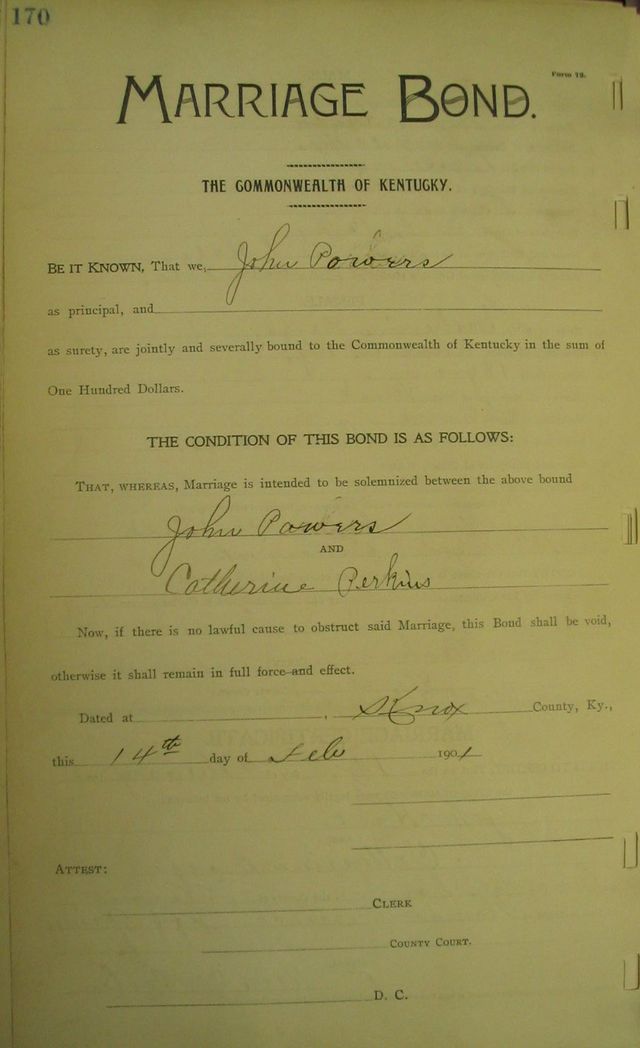 170
Form 12.
MARRIAGE BOND.
THE COMMONWEALTH OF KENTUCKY.
BE IT KNOWN, That we, John Powers
as principal, and
as surety, are jointly and severally bound to the Commonwealth of Kentucky in the sum of
One Hundred Dollars.
THE CONDITION OF THIS BOND IS AS FOLLOWS:
THAT, WHEREAS, Marriage is intended to be solemnized between the above bound
John Powers
AND
Catherine Perkins
Now, if there is no lawful cause to obstruct said Marriage, this Bond shall be void,
otherwise it shall remain in full force and effect.
Dated at , Knox County, Ky.,
this 14th day of Feb 1901
ATTEST:
CLERK
COUNTY COURT.
D. C.